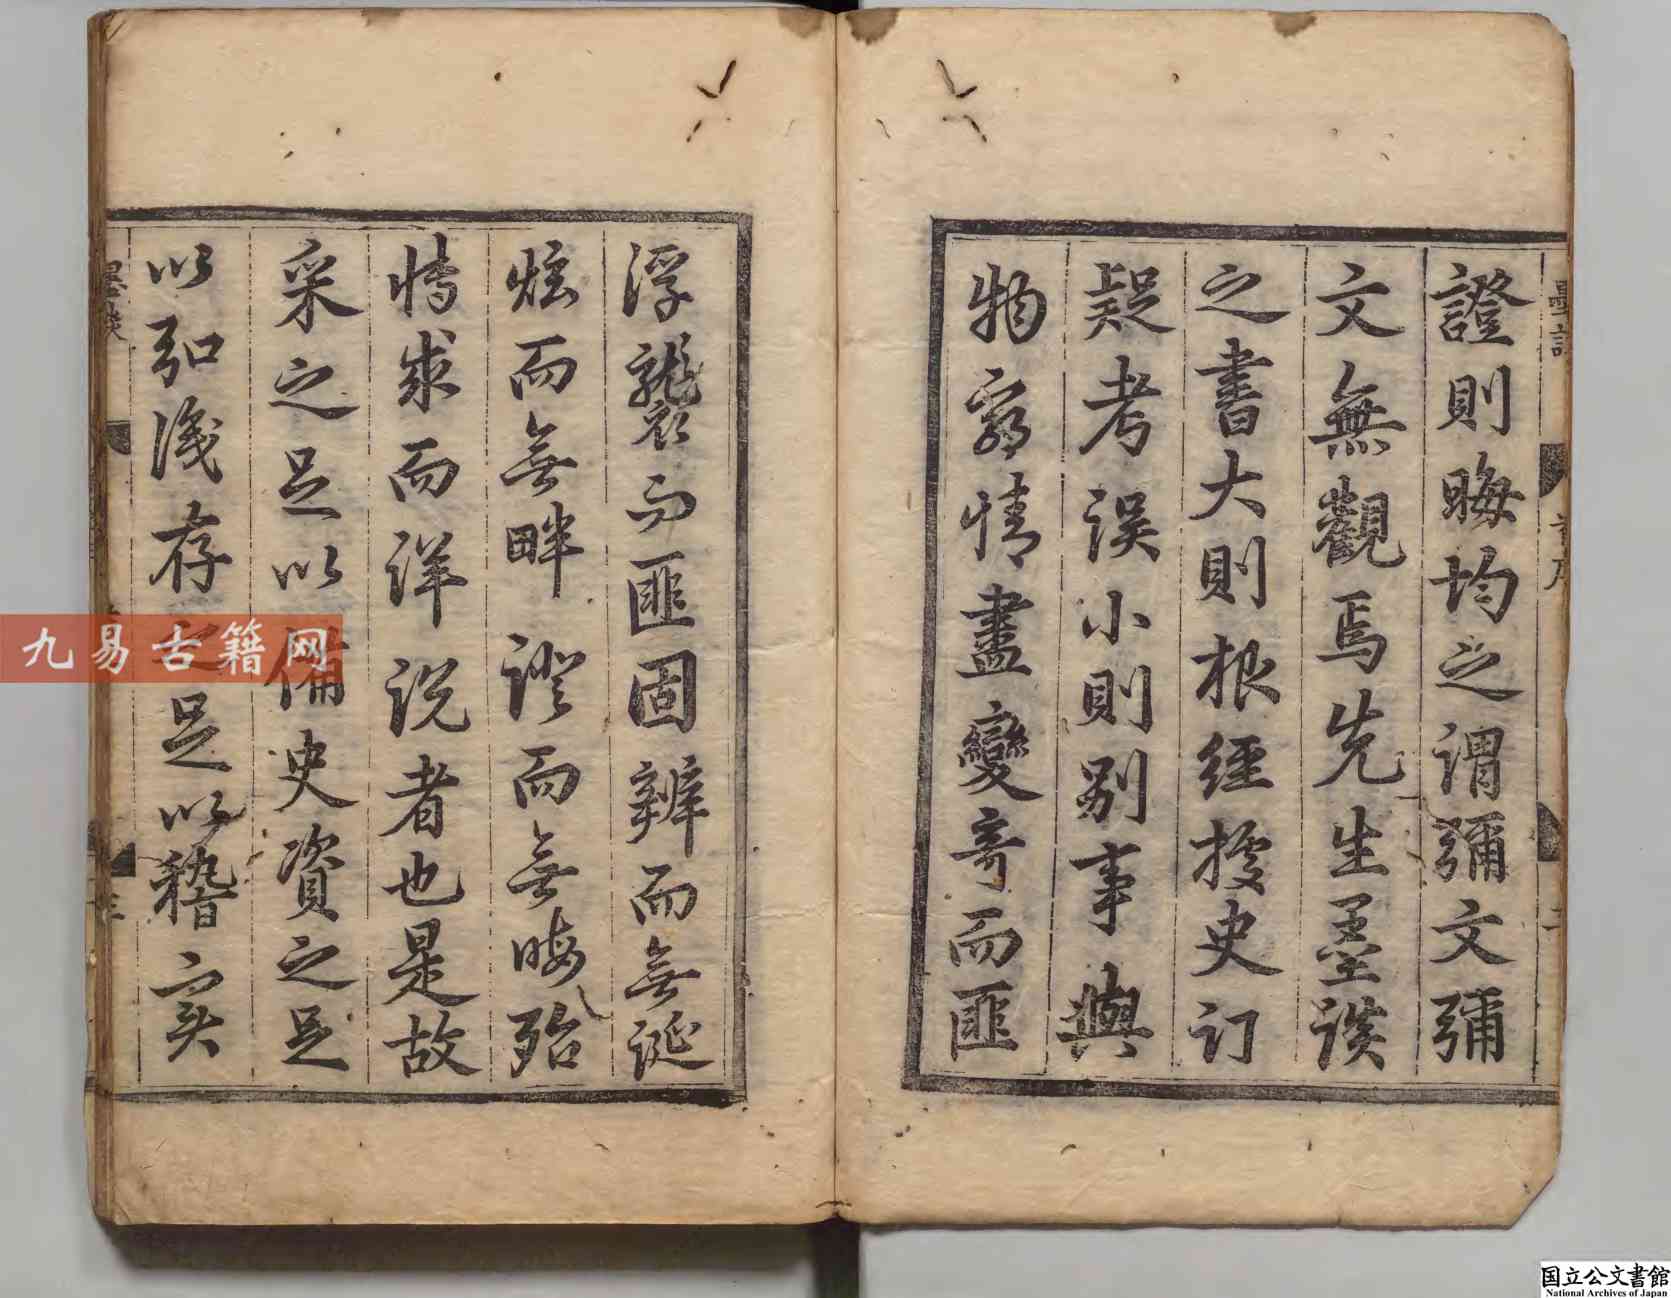 證則晦均之謂彌文彌
文無觀焉先生墨談
之書大則根經據史訂
疑考誤小則别事與
物窮情盡變奇而匪
浮襲而匪固辨而無誕
炫而無畔證而無晦殆
博求而詳説者也是故
采之足以備史資之足
以弘識存之足以稽實
墨談
三
九易古籍网
国立公文書館
National Archives of Japan